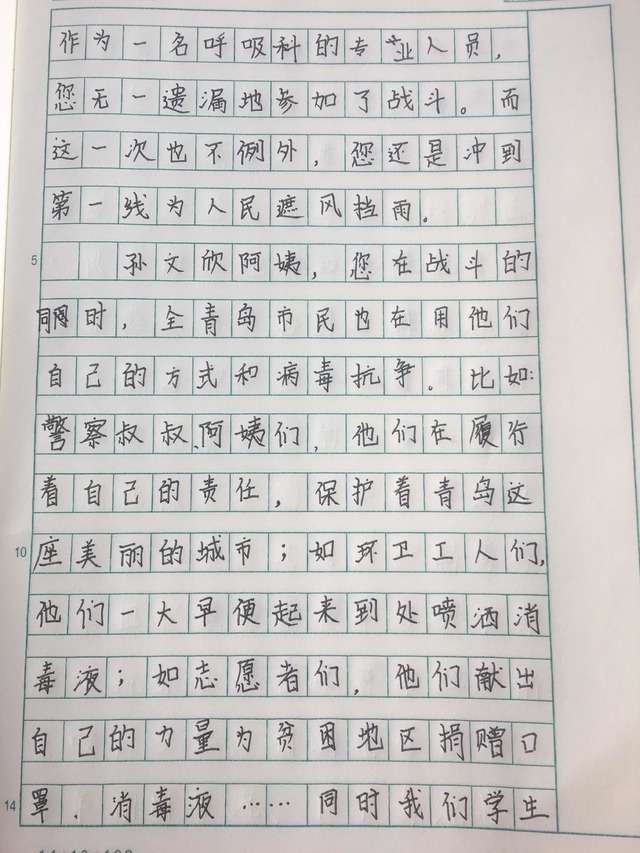 作为一名呼吸科的专业人员，
您无一遗漏地参加了战斗。而
这一次也不例外，您还是冲到
第一线为人民遮风挡雨。
5 孙文欣阿姨，您在战斗的
同时，全青岛市民也在用他们
自己的方式和病毒抗争。比如：
警察叔叔、阿姨们，他们在履行
着自己的责任，保护着青岛这
10 座美丽的城市；如环卫工人们，
他们一大早便起来到处喷洒消
毒液；如志愿者们，他们献出
自己的力量为贫困地区捐赠口
14 罩、消毒液……同时我们学生